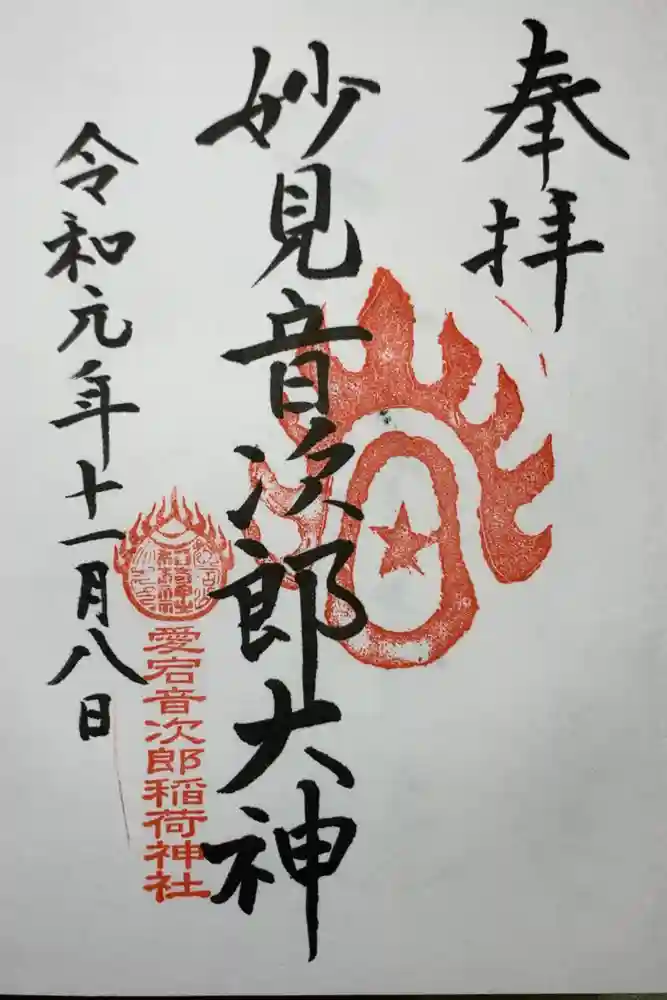 奉拝
妙見音次郎大神
愛宕音次郎稲荷神社
令和元年十一月八日